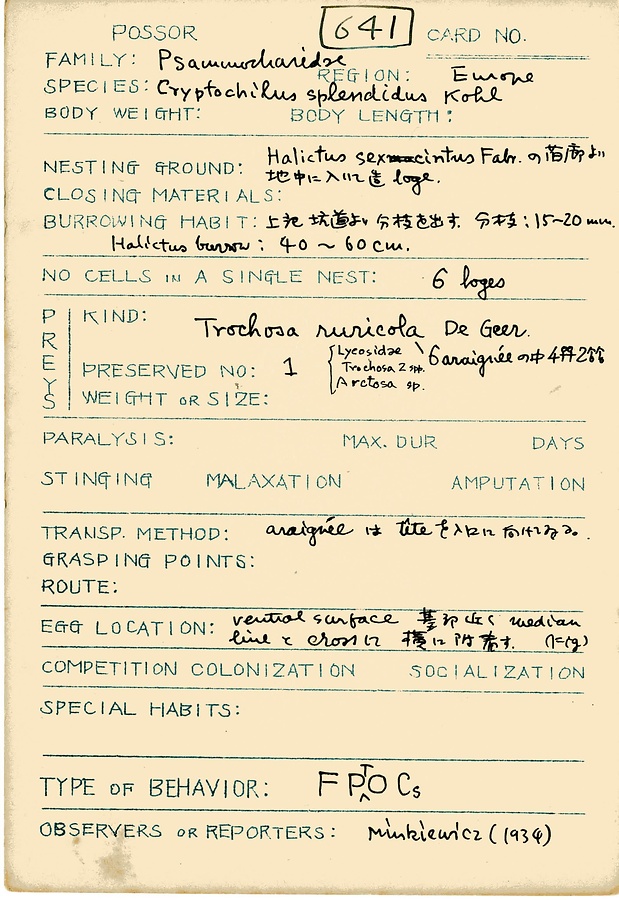 POSSOR 641 CARD NO.
FAMILY: Psammocharidae
REGION: Europe
SPECIES: Cryptochilus splendidus Kohl
BODY WEIGHT: BODY LENGTH:
NESTING GROUND: Halictus sexcintus Fabr. の
地中に入りに造 loge.
CLOSING MATERIALS:
BURROWING HABIT: 上記 坑道より 分枝を出す. 分枝: 15~20 mm.
Halictus burrow: 40 ~ 60 cm.
NO CELLS IN A SINGLE NEST: 6 loges
PREYS
KIND: Trochosa ruricola De Geer.
PRESERVED NO: 1 Lycosidae 6 araignée の中 4
Trochosa 2 sp.
Arctosa sp.
WEIGHT OR SIZE:
PARALYSIS: MAX. DUR DAYS
STINGING MALAXATION AMPUTATION
TRANSP. METHOD: araignée は tête を入口に向けてある.
GRASPING POINTS:
ROUTE:
EGG LOCATION: ventral surface 基部近く median
line と cross に 横に附着す. (1=fig)
COMPETITION COLONIZATION SOCIALIZATION
SPECIAL HABITS:
TYPE OF BEHAVIOR: F P T O Cs
OBSERVERS OR REPORTERS: Minkiewicz (1934)